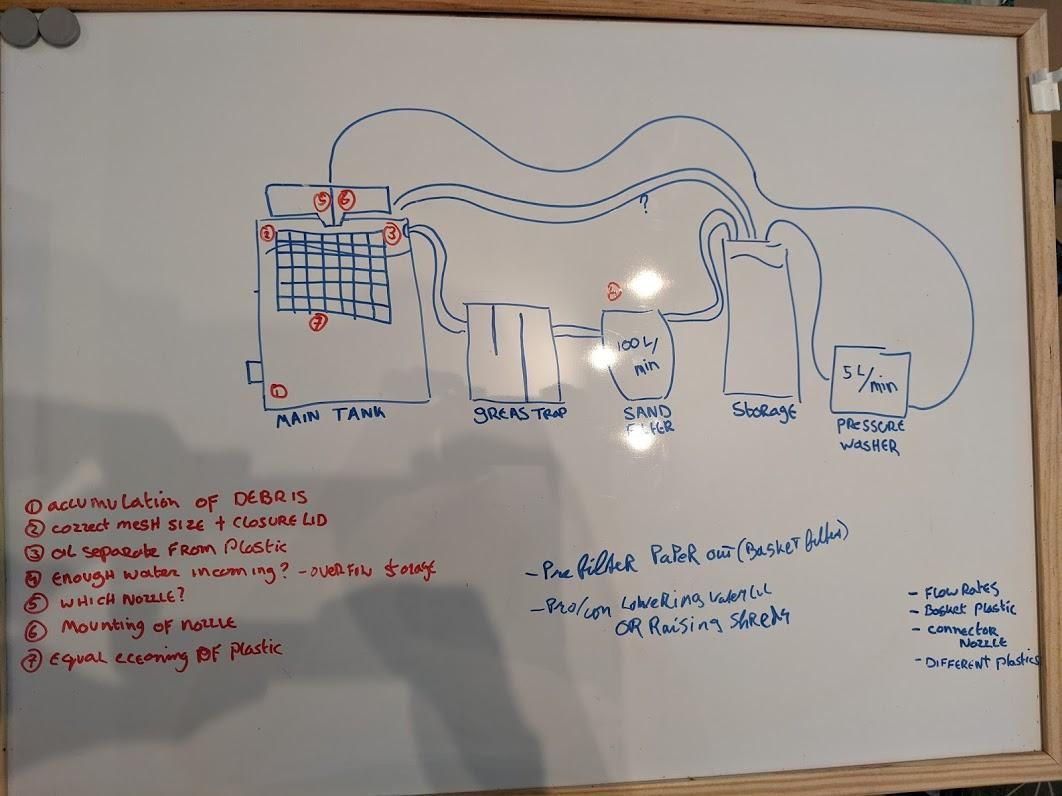 ⑤ ⑥
?
② ③
④
100 L/
min
⑦
5 L/min
①
MAIN TANK
GREAS TRAP
SAND
FILTER
Storage
PRESSURE
WASHER
① accumulation OF DEBRIS
② correct MESH SIZE + CLOSURE LID
③ OIL separate FROM Plastic
④ Enough water incoming? - OVERFLOW Storage
⑤ WHICH NOZZLE?
⑥ Mounting OF NOZZLE
⑦ Equal cleaning OF plastic
- Pre filter PaPER out (Basket filter)
- Pro/con Lowering
OR Raising Shreds
- FLOW RATES
- Basket Plastic
- connector
NOZZLE
- DIFFERENT plastics